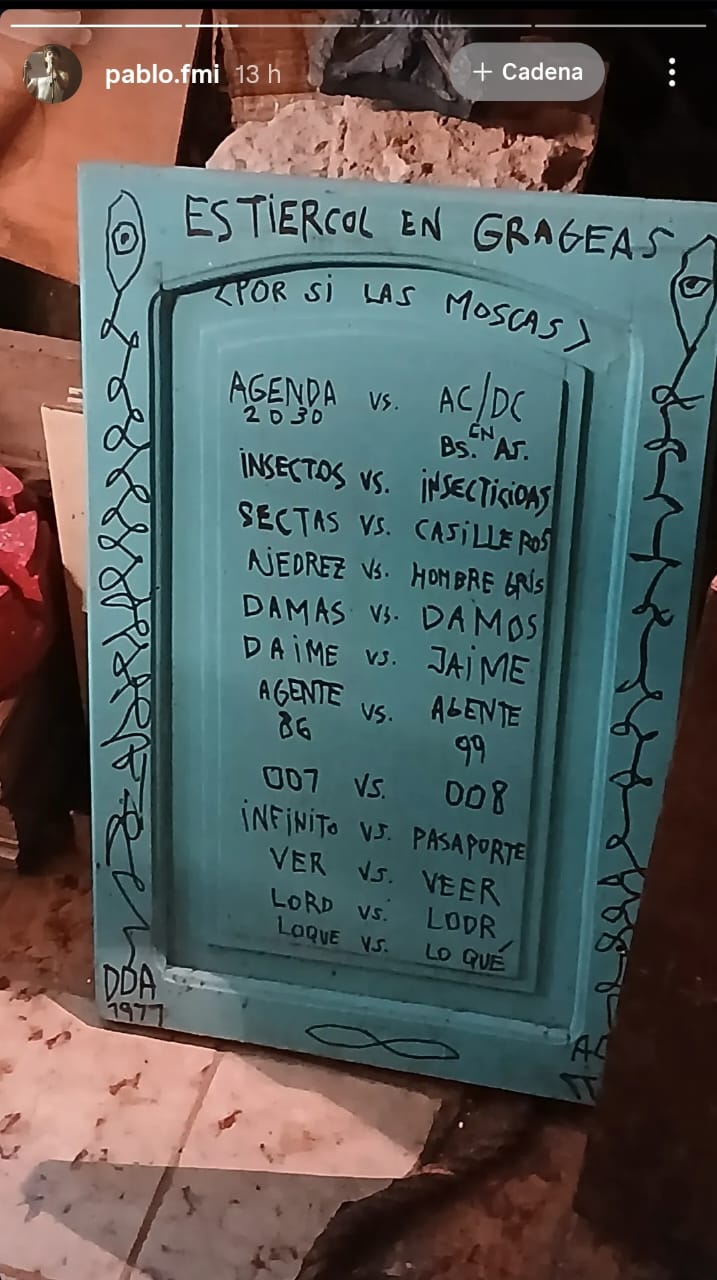 pablo.fmi 13 h
+ Cadena
ESTIERCOL EN GRAGEAS
<POR SI LAS MOSCAS>
AGENDA 2030 vs. AC/DC EN BS. AS.
INSECTOS VS. INSECTICIDAS
SECTAS VS. CASILLEROS
AJEDREZ VS. HOMBRE GRIS
DAMAS VS. DAMOS
DAIME VS. JAIME
AGENTE 86 VS. AGENTE 99
007 VS. 008
INFINITO VS. PASAPORTE
VER VS. VEER
LORD VS. LODR
LOQUE VS. LO QUÉ
DDA
1977